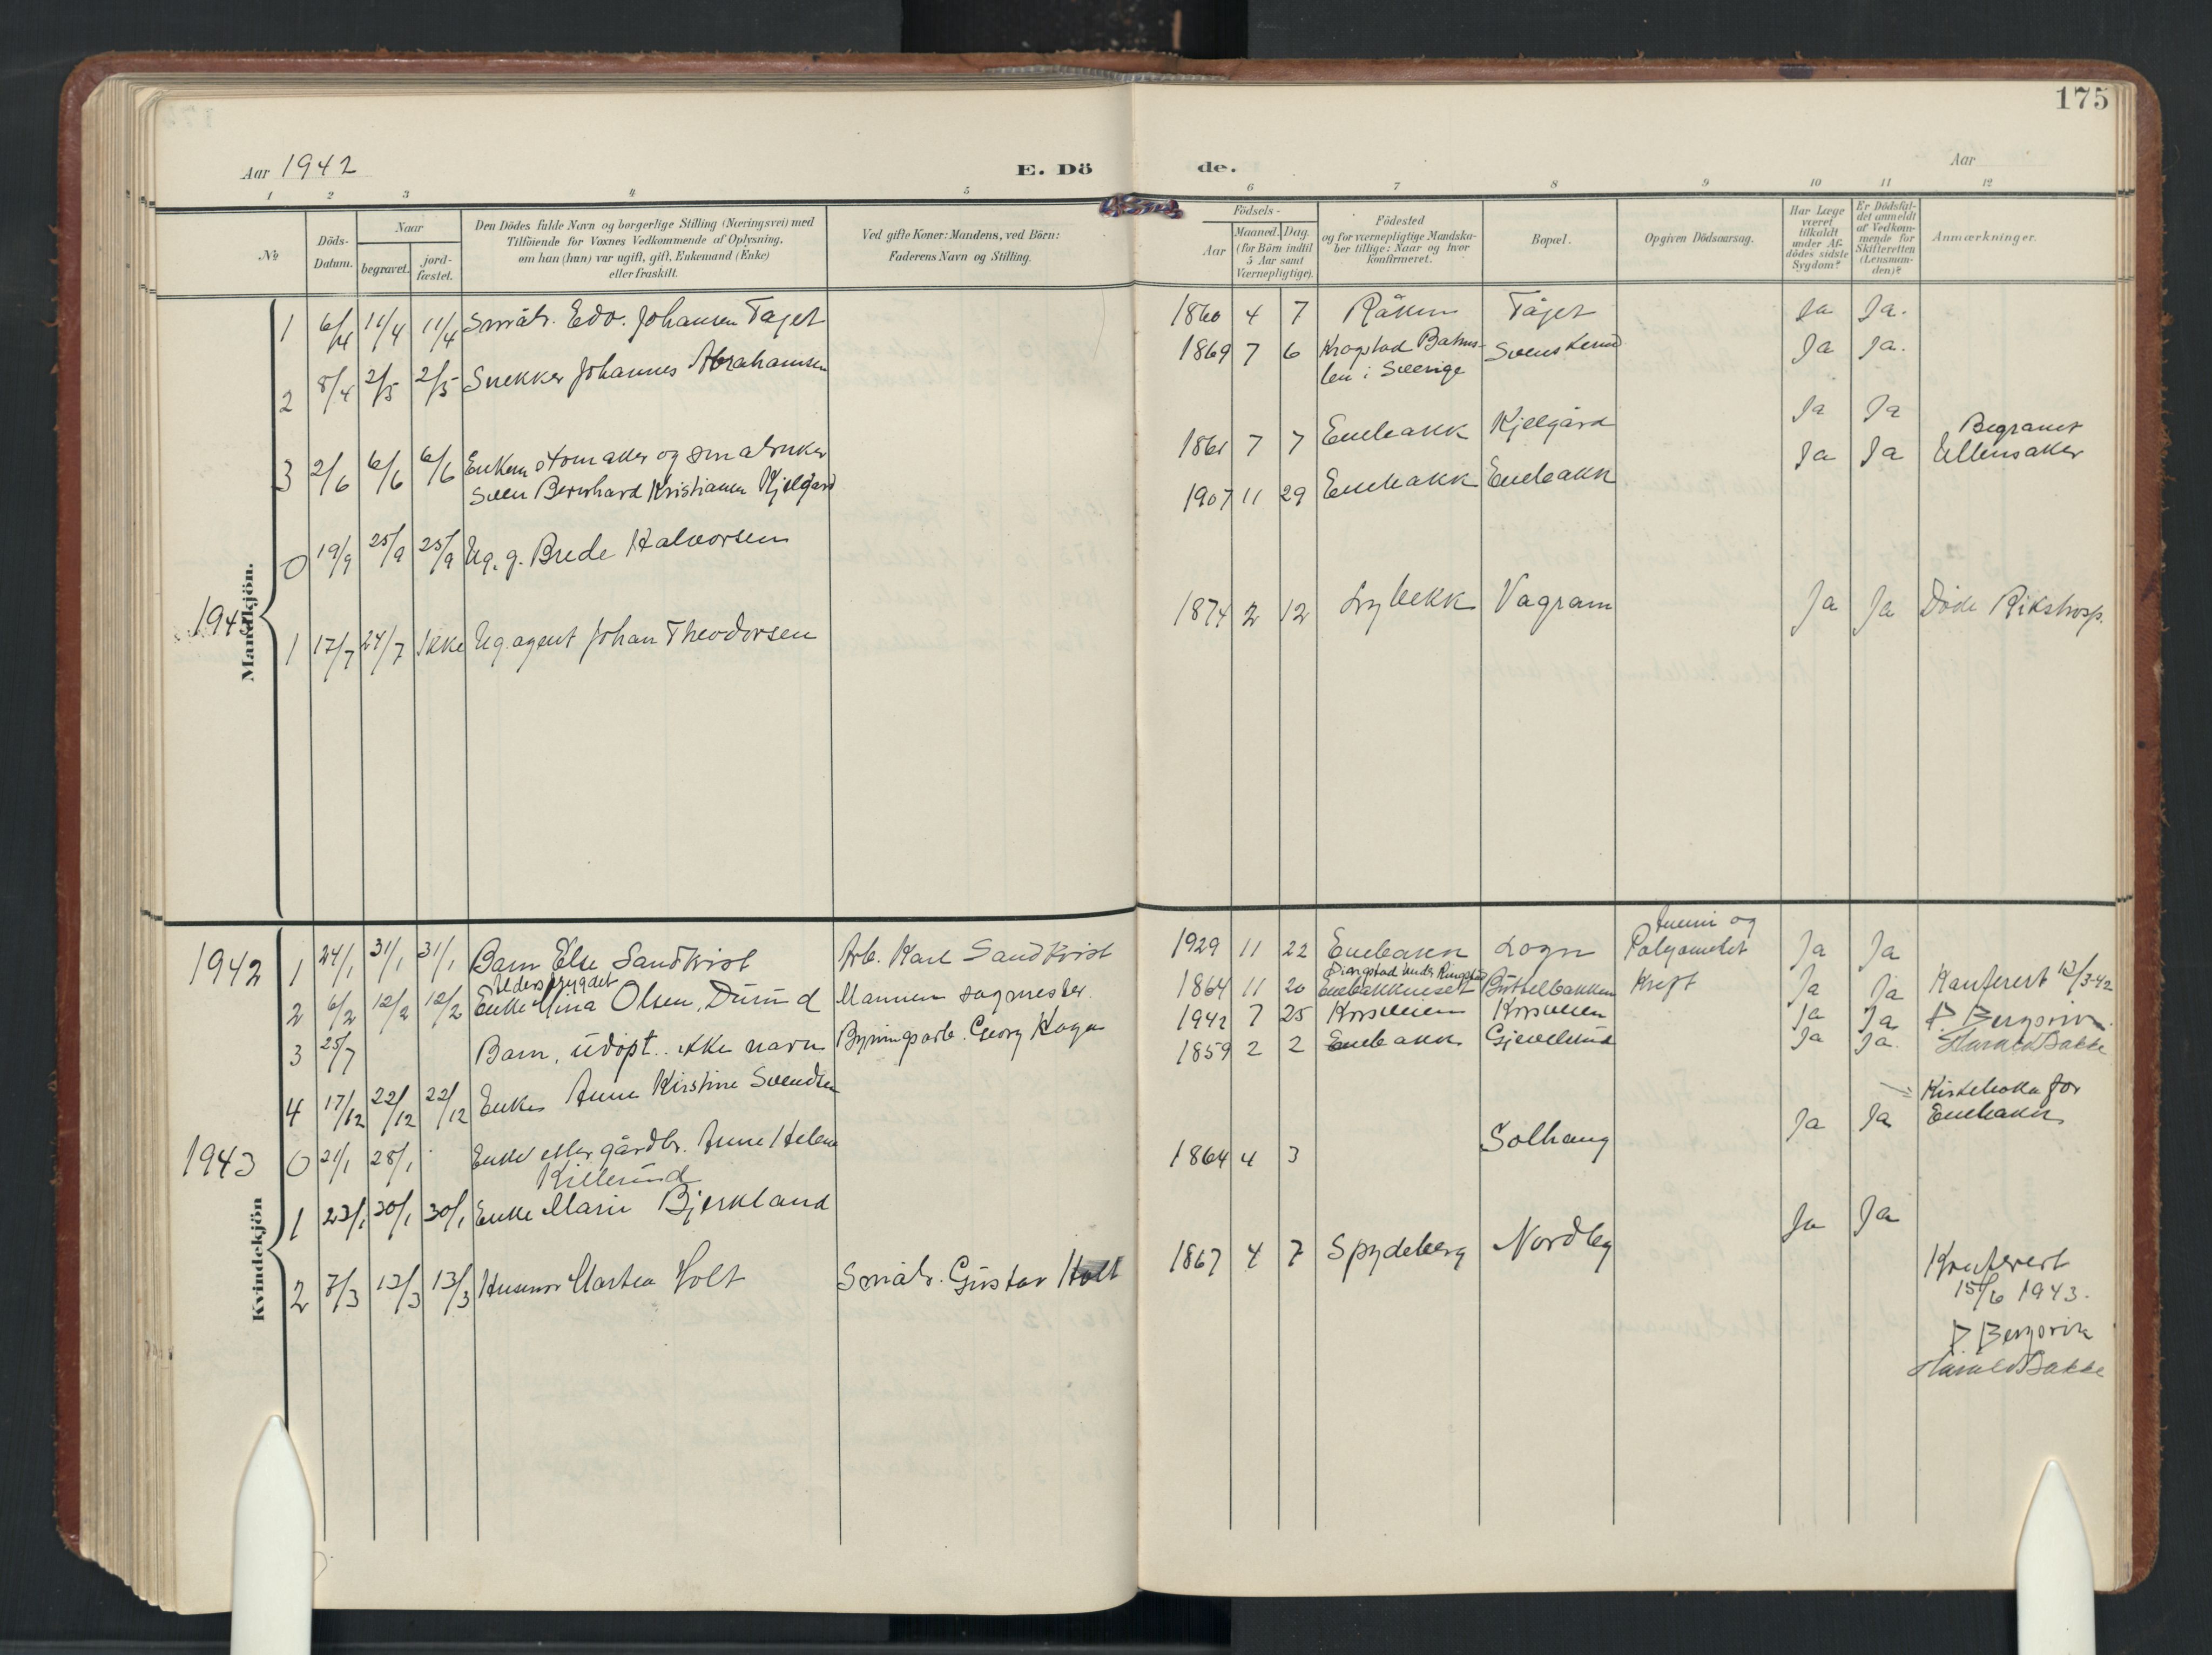 175
Aar 1942
E. Dö
de.
Aar
1 2 3 4 5 6 7 8 9 10 11 12
No
Döds-
Datum.
Naar
begravet.
jord-
fæstet.
Den Dödes fulde Navn og borgerlige Stilling (Næringsvei) med
Tilföiende for Voxnes Vedkommende af Oplysning,
om han (hun) var ugift, gift, Enkemand (Enke)
eller fraskilt.
Ved gifte Koner: Mandens, ved Börn:
Faderens Navn og Stilling.
Födsels-
Aar
Maaned. Dag.
(for Börn indtil
5 Aar samt
Værnepligtige).
Födested
og for værnepligtige Mandska-
ber tillige: Naar og hvor
konfirmeret.
Bopæl.
Opgiven Dödsaarsag.
Har Læge
været
tilkaldt
under Af-
dödes sidste
Sygdom?
Er Dödsfal-
det anmeldt
af Vedkom-
mende for
Skifteretten
(Lensman-
den)?
Anmærkninger.
Mandkjön.
1 6/4 11/4 11/4 Småbr. Edv. Johansen Tajet 1860 4 7 Råken Tajet Ja Ja.
2 8/4 2/5 2/5 Snekker Johannes Abrahamsen 1869 7 6 Krogstad
i Sverige Svenskerud Ja Ja.
3 2/6 6/6 6/6 Enkem. og småbruker
Sven Bernhard Kristiansen Kjelgård 7 7 Enebakk Kjelgård Ja Ja
0 19/9 25/9 25/9 Ug. g. Brede Halvorsen 1907 11 29 Enebakk Enebakk Ja Ja Begravet
Ullensaker
1943
1 17/7 24/7 Ikke Ug. agent Johan Theodorsen 1874 2 12 Lybekk Vagram Ja Ja Döde Rikshosp.
Kvindekjön
1942
1 24/1 31/1 31/1 Barn Else Sandkvist Arb. Karl Sandkvist 1929 11 22 Enebakk Logn og
Ja Ja
Alderstrygdet
2 6/2 12/2 12/2 Enke Mina Olsen, Durud Mannen sagmester 1864 11 20 Kreft Ja Ja Konferert 13/3-42
3 25/7 Barn, udöpt. ikke navn Bygningsarb. Georg Hagen 1942 7 25 Korsveien Korsveien Ja Ja P. Bergsvik
4 17/12 22/12 22/12 Enke Anne Kirstine Svendsen 1859 2 2 Enebakk Gjevelsrud Ja Ja. Harald Bakke
1943
0 21/1 28/1 Enke etter gårdbr. Anne Helene
Killerud 1864 4 3 Solhaug Ja Ja Kirkeboka for
Enebakk
1 23/1 30/1 30/1 Enke Marie Bjerkland
2 7/3 13/3 13/3 Husmor Martea Holt Småbr. Gustav Holt 1867 4 7 Spydeberg Nordby Ja Ja
Konferert
15/6 1943.
P Bergsvik
Harald Bakke